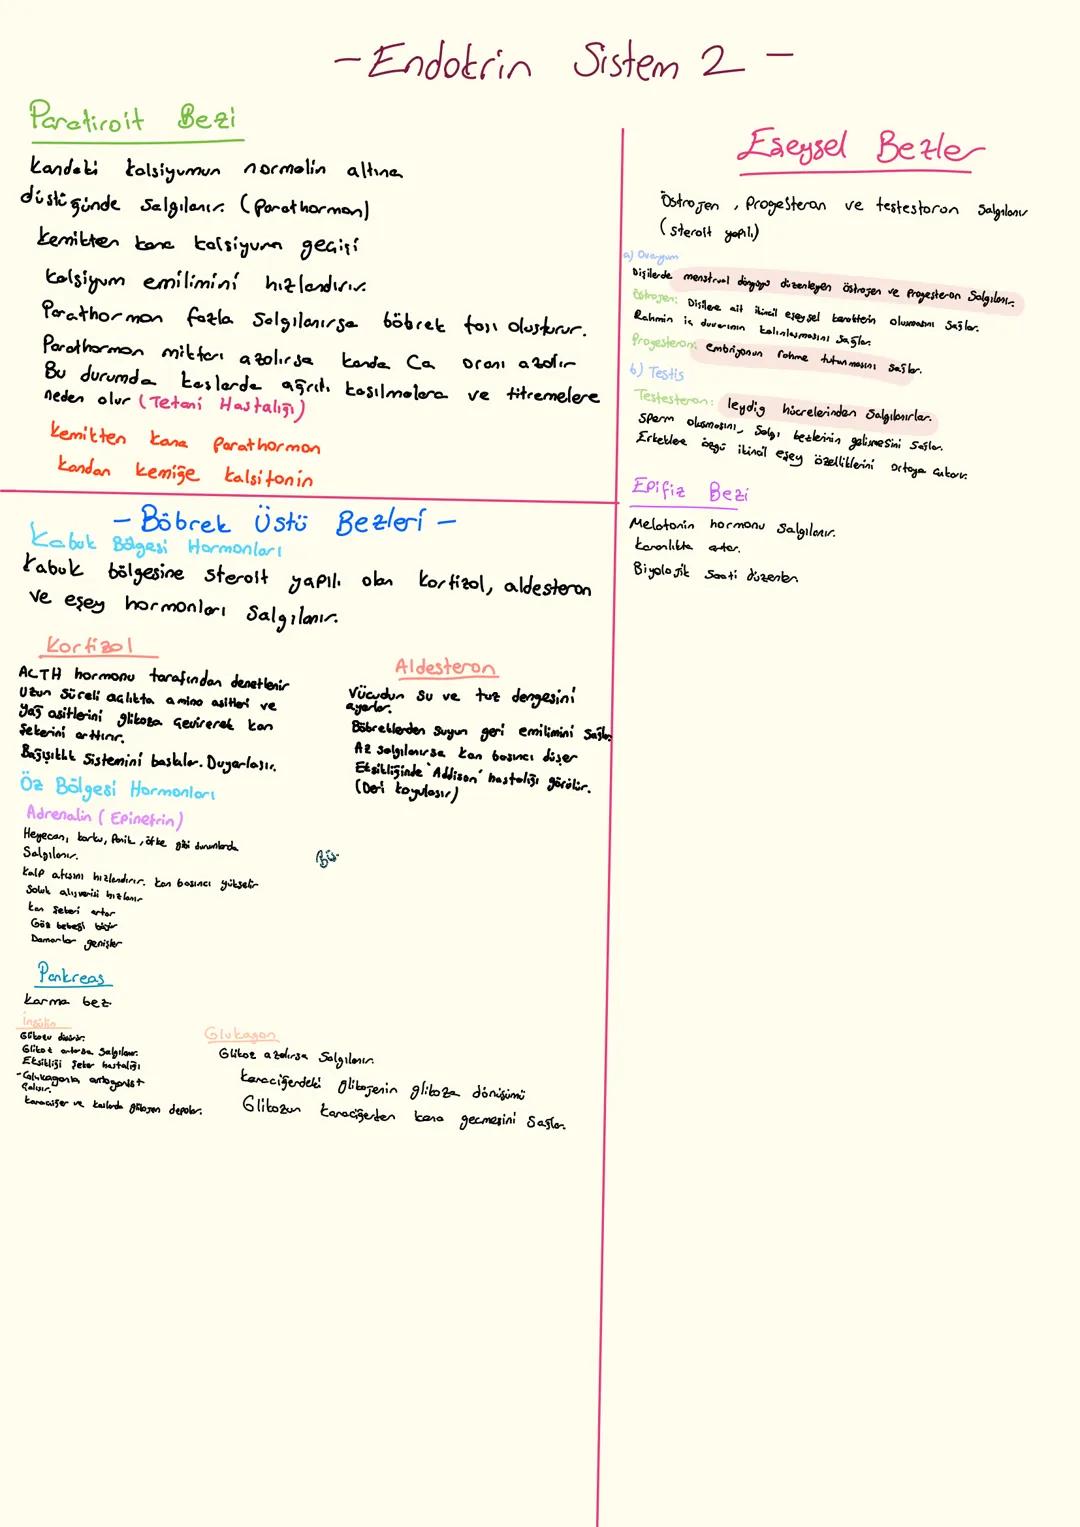 - Endokrin Sistem 2 -
Paratiroit Bezi
Kandaki kalsiyumun normalin altına
düştüğünde salgılanır. (Parathormon)
Kemikten kana kalsiyum geçişi
Kalsiyum emilimini hızlandırır.
Parathormon fazla salgılanırsa böbrek taşı oluşturur.
Parathormon miktarı azalırsa kanda Ca oranı azalır
Bu durumda kaslarda ağrılı kasılmalara ve titremelere
neden olur (Tetani Hastalığı)
Kemikten kana Parathormon
Kandan kemiğe kalsitonin
- Böbrek Üstü Bezleri -
Kabuk Bölgesi Hormonları
Kabuk bölgesine steroit yapılı olan kortizol, aldesteron
ve eşey hormonları salgılanır.
Kortizol
ACTH hormonu tarafından denetlenir
Uzun süreli açlıkta amino asitleri ve
yağ asitlerini glikoza çevirerek kan
şekerini arttırır.
Bağışıklık sistemini baskılar. Duyarlaşır.
Aldesteron
Vücudun su ve tuz dengesini
ayarlar.
Böbreklerden suyun geri emilimini sağlar
Az salgılanırsa kan basıncı düşer
Eksikliğinde 'Addison' hastalığı görülür.
(Deri koyulaşır)
Öz Bölgesi Hormonları
Adrenalin (Epinefrin)
Heyecan, korku, panik, öfke gibi durumlarda
Salgılanır.
Kalp atışını hızlandırır. Kan basıncı yükselir
Soluk alışverişi hızlanır
Kan şekeri artar
Göz bebeği büyür
Damarlar genişler
Pankreas
Karma bez
İnsülin
Glikozu düşürür.
Glikoz artarsa salgılanır.
Eksikliği şeker hastalığı
-Glukagonla antagonist
çalışır.
Karaciğer ve kaslarda glikojen depolar.
Glukagon
Glikoz azalırsa salgılanır.
Karaciğerdeki glikojenin glikoza dönüşümü
Glikozun karaciğerden kana geçmesini sağlar.
Eşeysel Bezler
Östrojen, Progesteron ve testestoron salgılanır
(steroit yapılı)
a) Ovaryum
Dişilerde menstrual döngüyü düzenleyen östrojen ve progesteron salgılanır.
Östrojen: Dişilere ait ikincil eşeysel karakterin oluşmasını sağlar.
Rahmin iç duvarının kalınlaşmasını sağlar.
Progesteron: embriyonun rahme tutunmasını sağlar.
b) Testis
Testesteron: leydig hücrelerinden salgılanırlar.
Sperm oluşmasını, salgı bezlerinin gelişmesini sağlar.
Erkeklere özgü ikincil eşey özelliklerini ortaya çıkarır.
Epifiz Bezi
Melatonin hormonu salgılanır.
Karanlıkta artar.
Biyolojik saati düzenler.